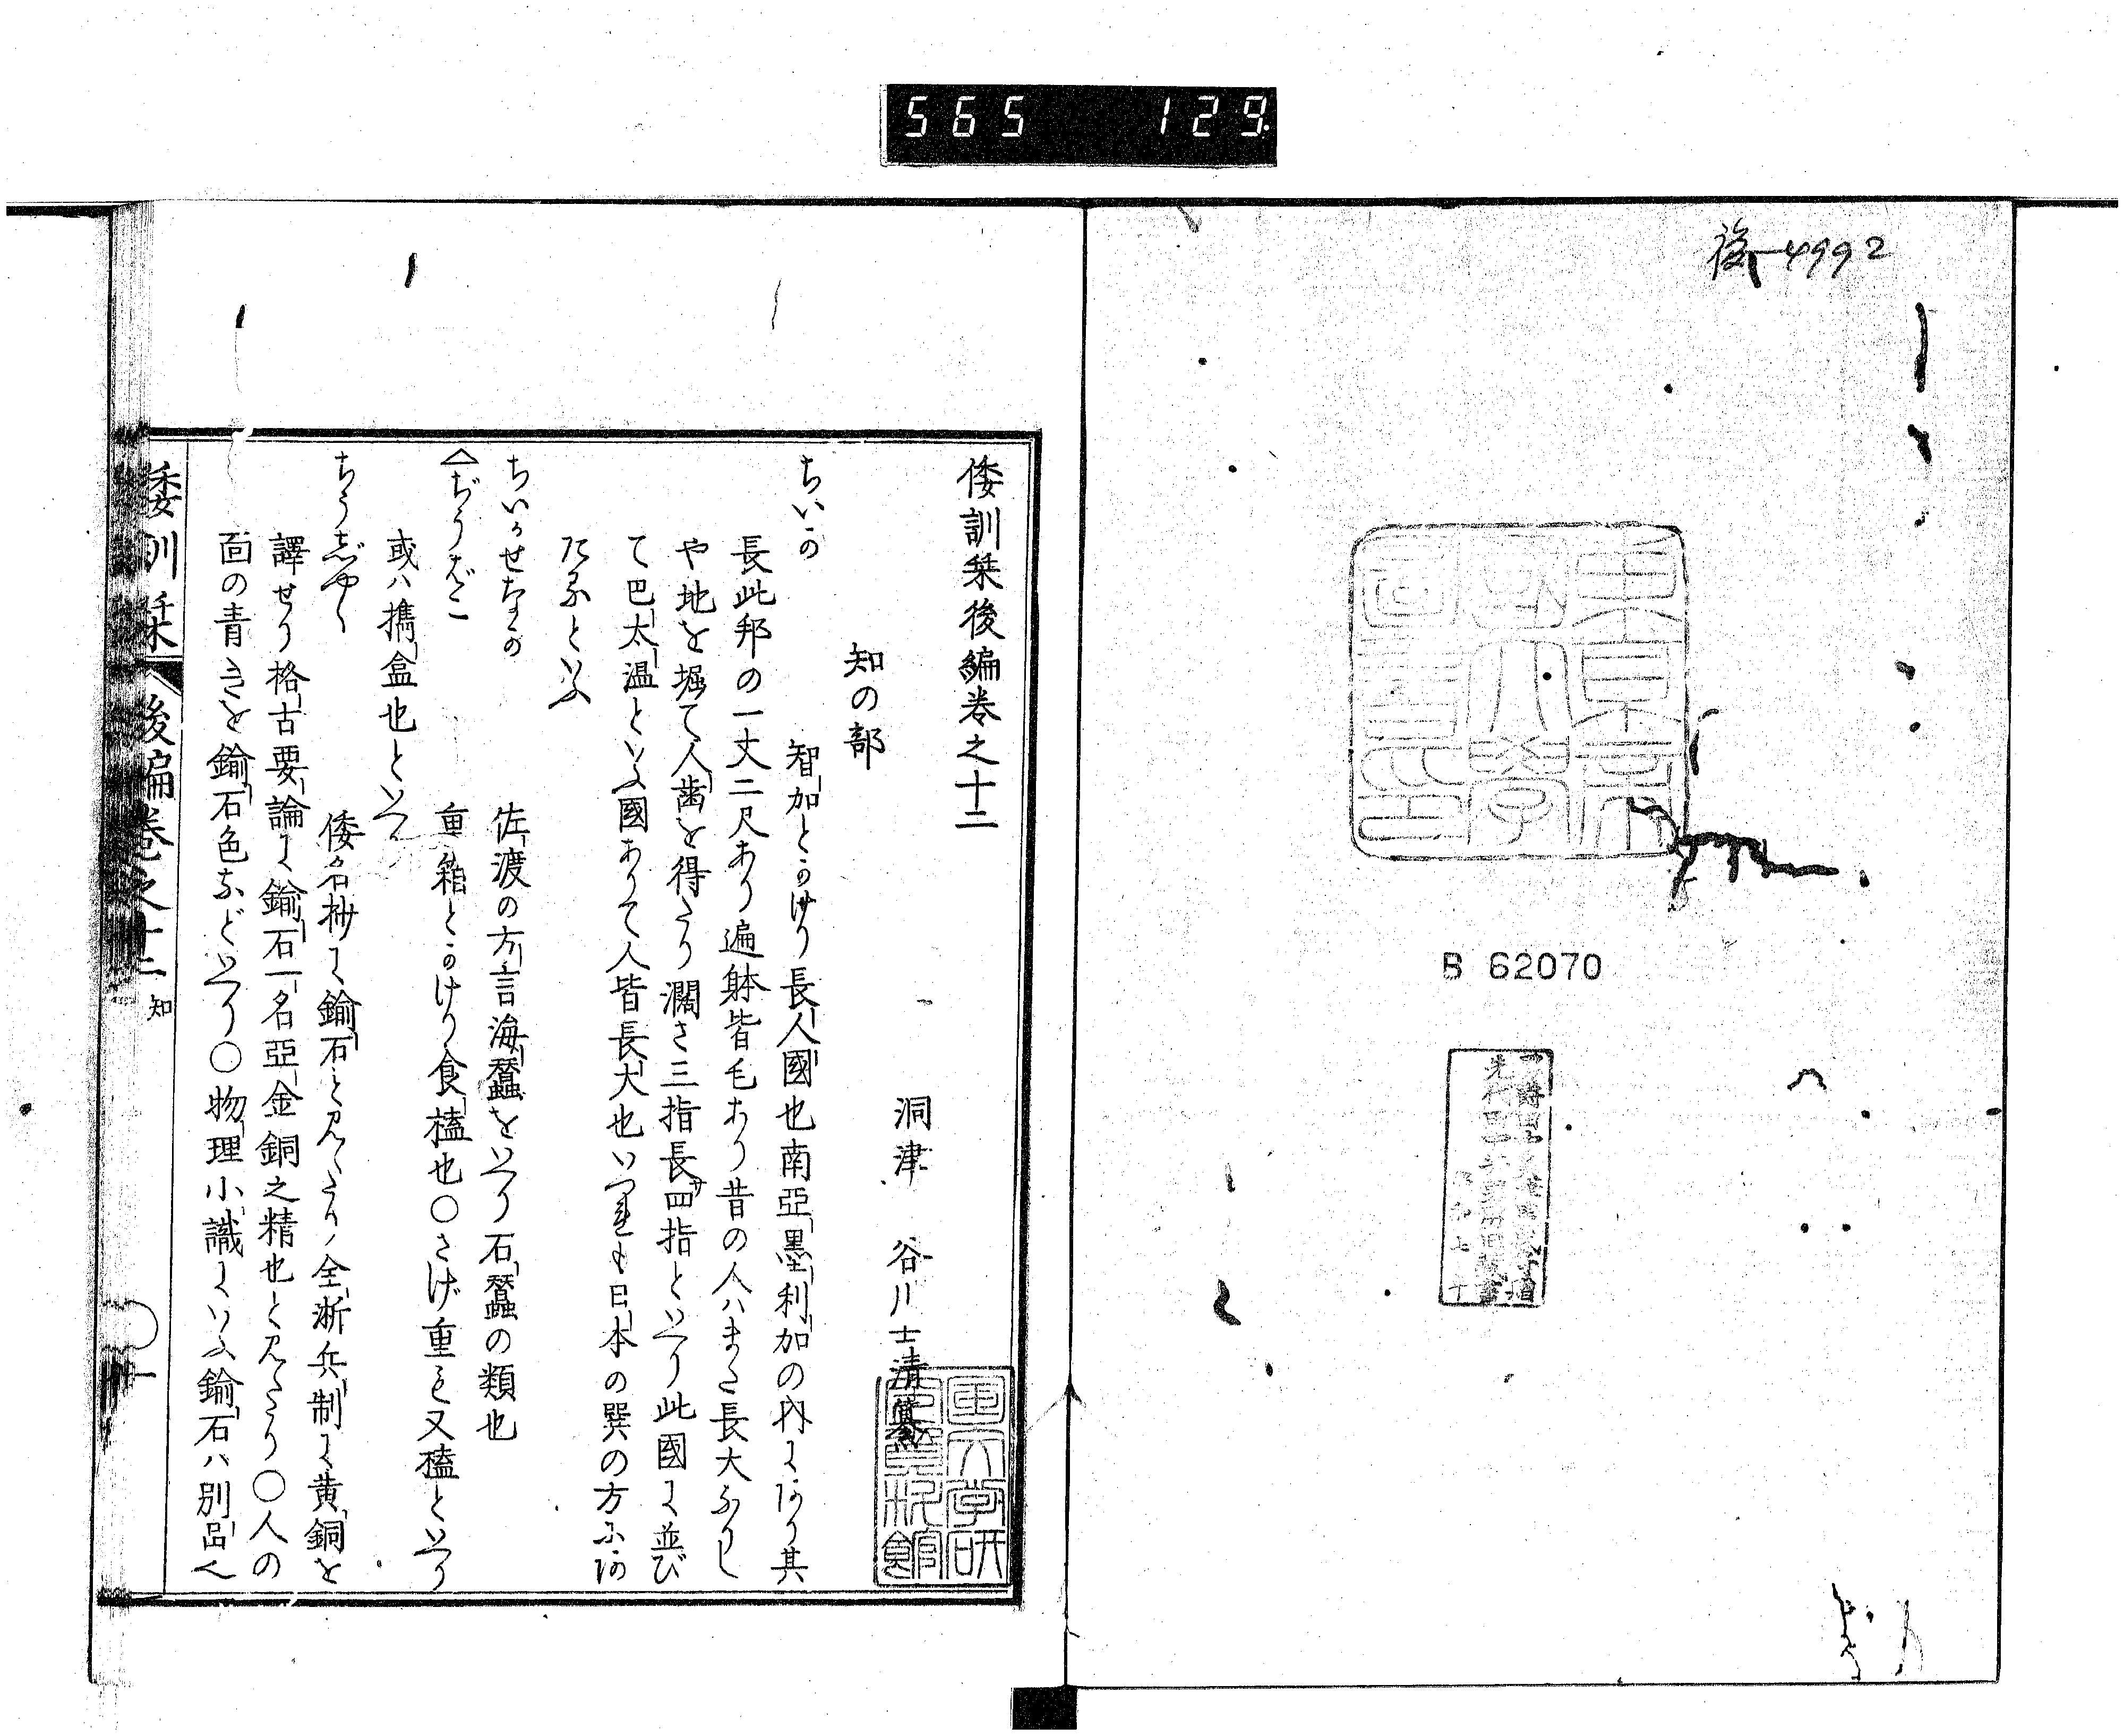 565 129
後-4992
東京帝國大學圖書印
B 62070
倭訓栞後編巻之十二
洞津 谷川士清纂
知の部
ちいか 智加とかけり長人國也南亞墨利加の内にあり其
長此邦の一丈二尺あり遍躰皆毛あり昔の人ハまた長大なりし
や地を堀て人歯を得たり濶さ三指長サ四指といへり此國に並び
て巴太温といふ國ありて人皆長大也いづれも日本の巽の方にあ
たるといふ
ちいかせなか 佐渡の方言海蠶をいへり石蠶の類也
△ぢうばこ 重箱とかけり食榼也〇さげ重を又榼といへり
或ハ擕盒也といへり
ちうじやく 倭名抄に鍮石と見えたり全淅兵制に黄銅を
譯せり格古要論に鍮石一名亞金銅之精也と見えたり〇人の
面の青きを鍮石色などいへり〇物理小識にいふ鍮石ハ別品也
倭訓栞 後編巻之十二 知 一